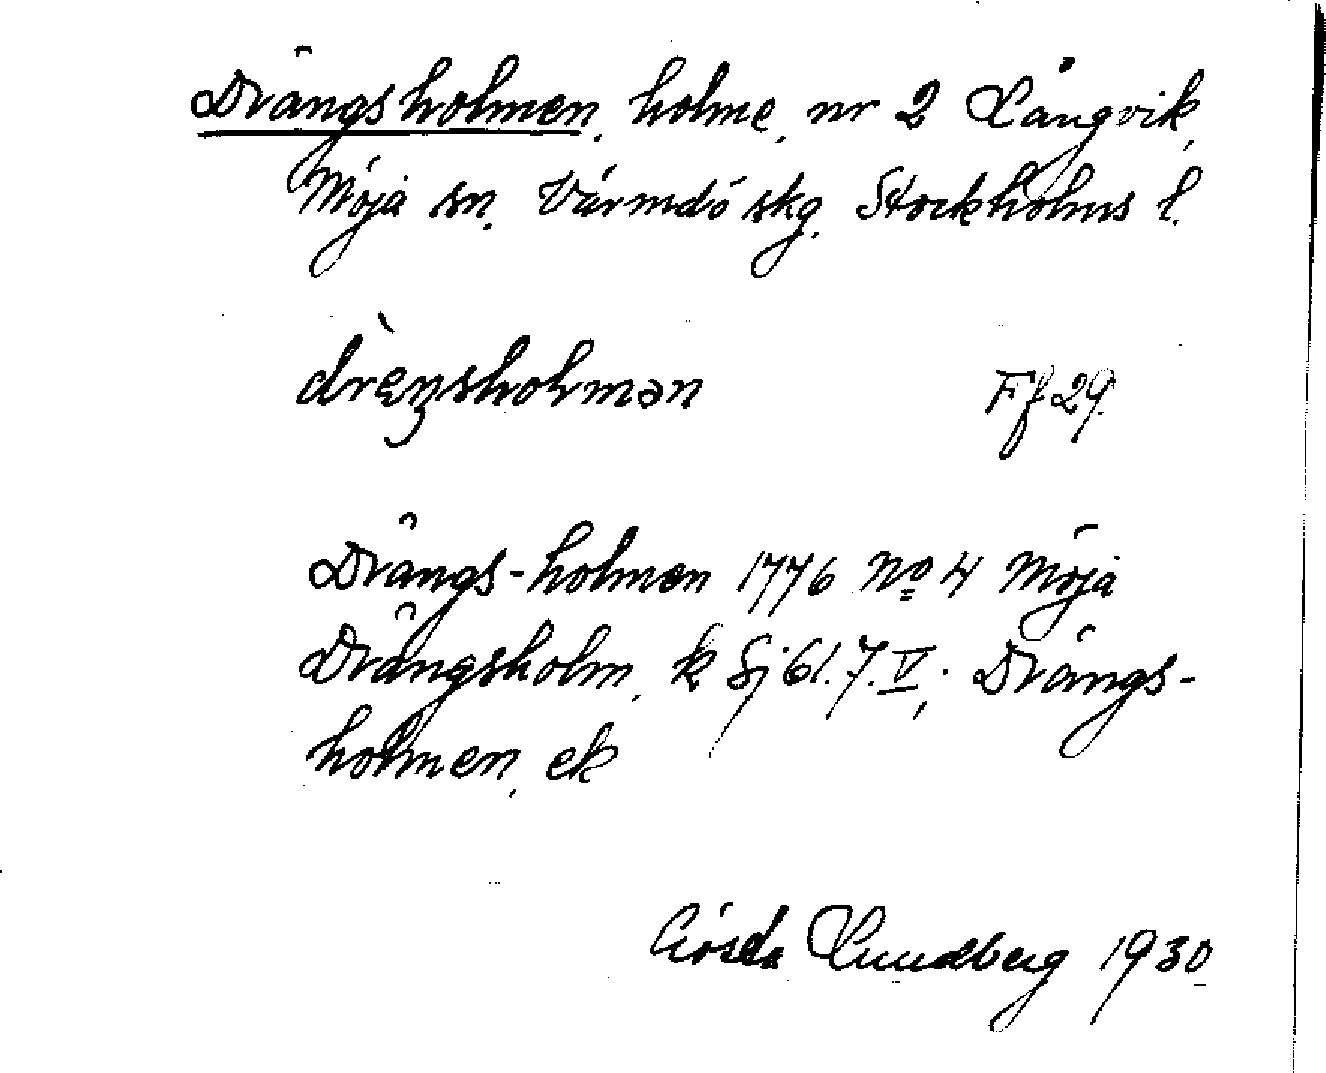 Drängsholmen, holme, nr 2 Långvik,
Möja sn, Värmdö skg, Stockholms l.
dreŋsholmən Ff 29.
Drängs-holmen 1776 No 4 Möja
Drängsholm, k Sj 61.7.V; Drängs-
holmen, ek
Gösta Lundberg 1930